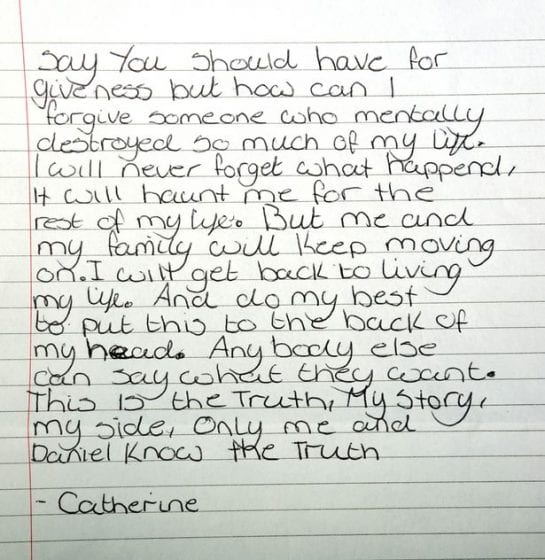 Say You should have for
giveness but how can I
forgive someone who mentally
destroyed so much of my life.
I will never forget what happend,
It will haunt me for the
rest of my life. But me and
my family will keep moving
on. I will get back to living
my life. And do my best
to put this to the back of
my head. Any body else
can say what they want.
This is the Truth, My Story,
my side, Only me and
Daniel Know the Truth
- Catherine